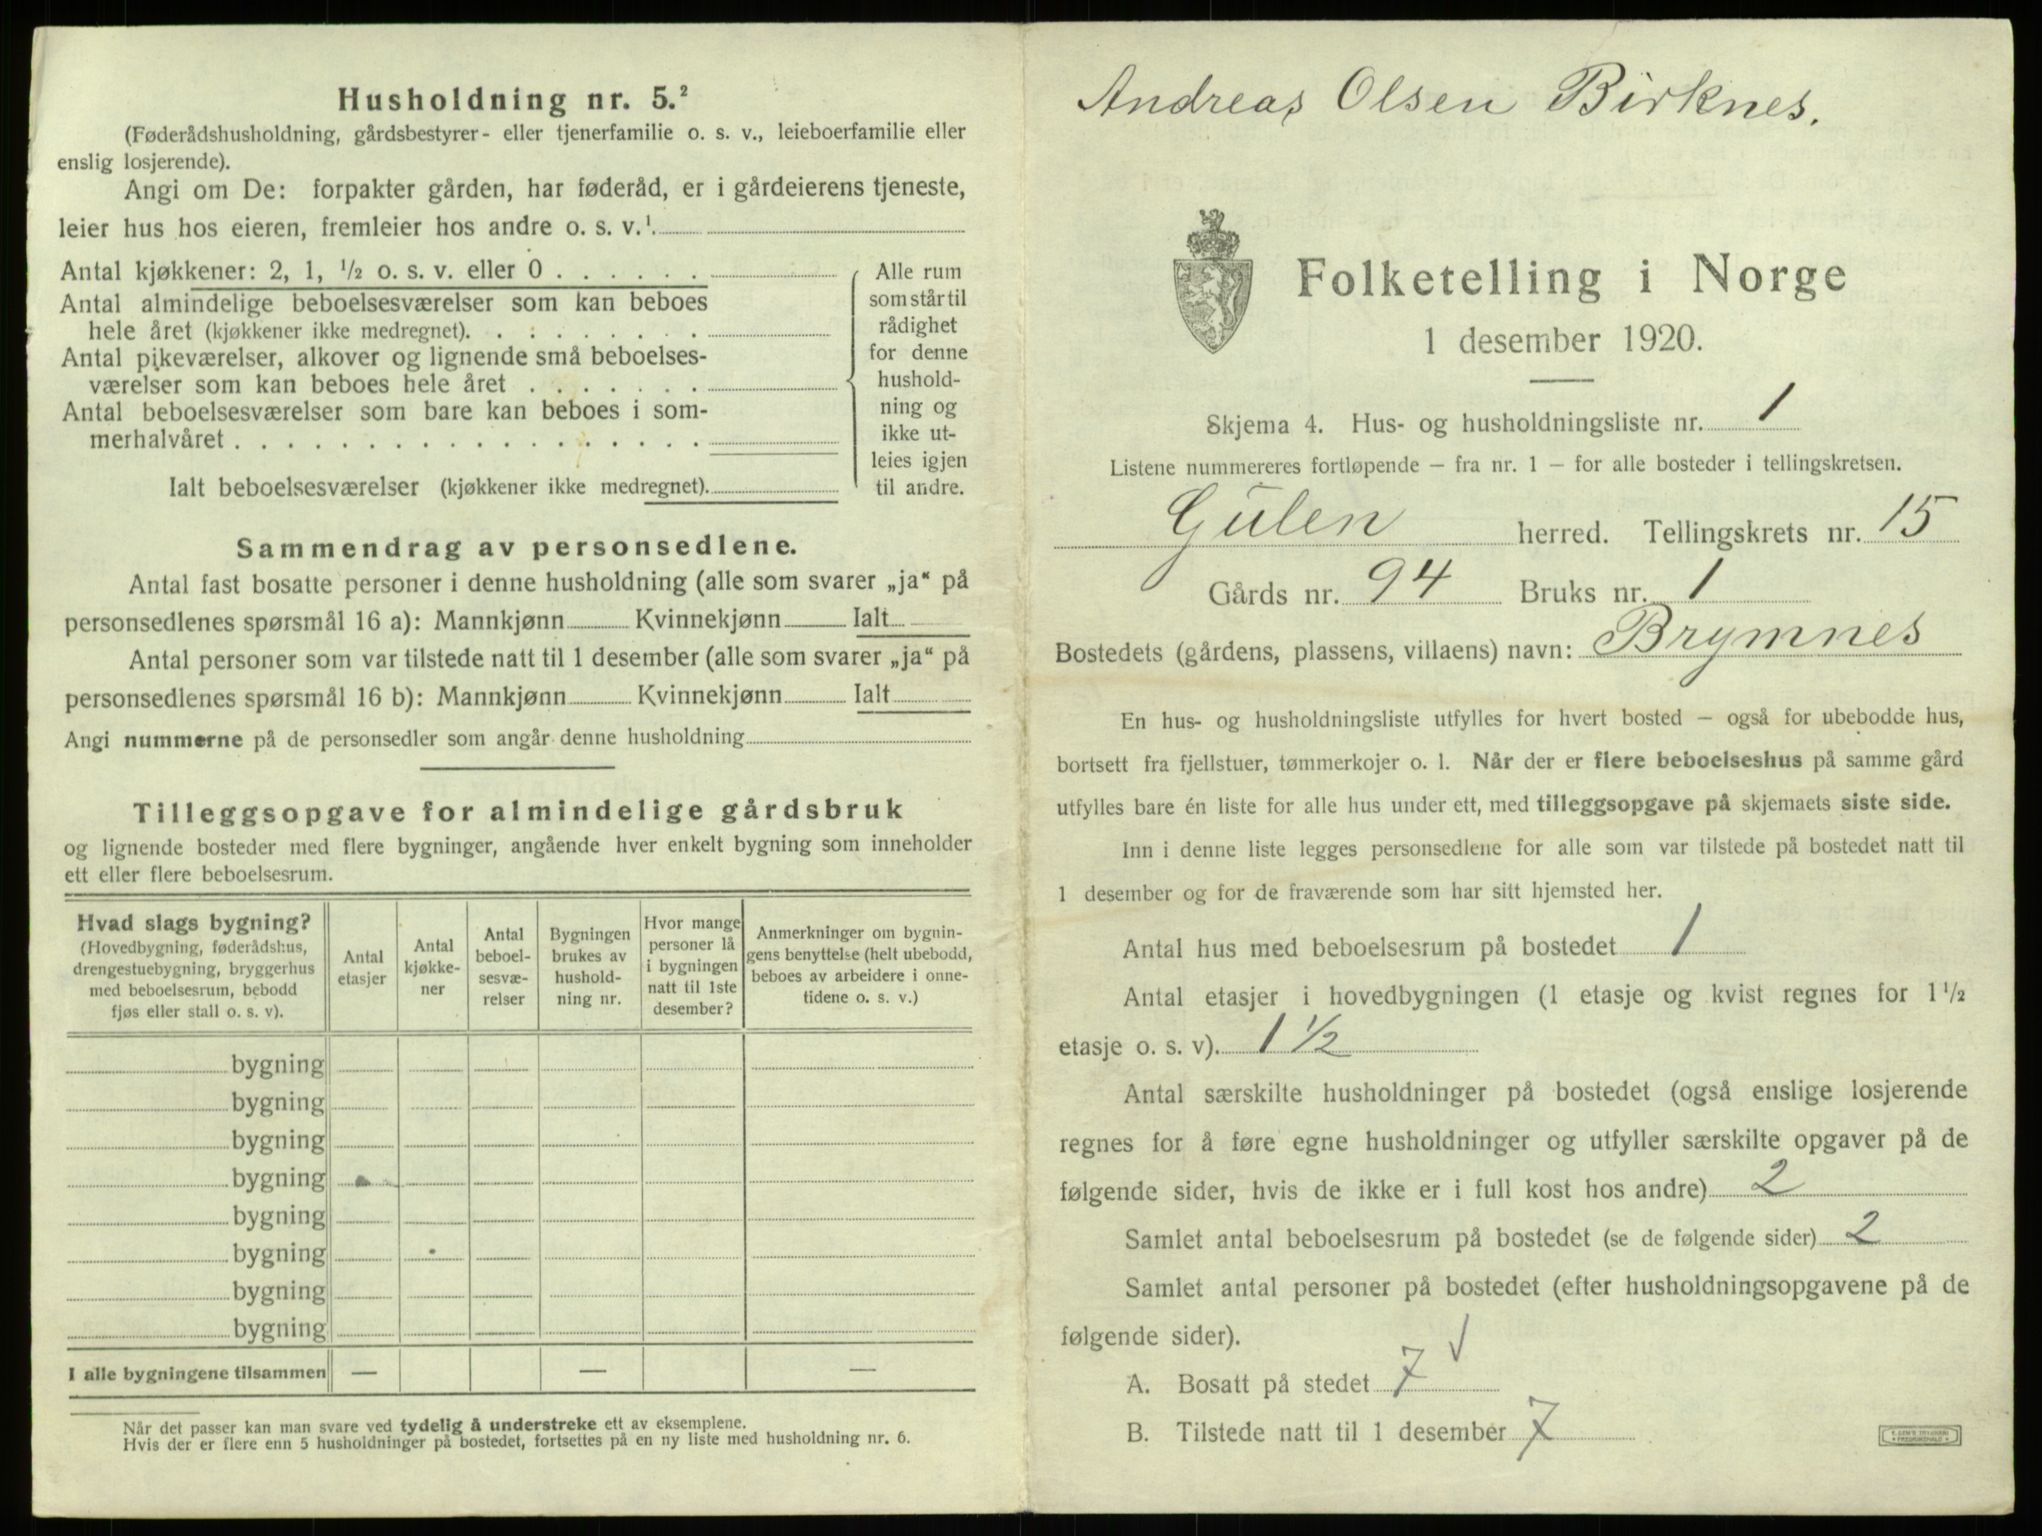 Husholdning nr. 5.²
(Føderådshusholdning, gårdsbestyrer- eller tjenerfamilie o. s. v., leieboerfamilie eller
enslig losjerende).
Angi om De: forpakter gården, har føderåd, er i gårdeierens tjeneste,
leier hus hos eieren, fremleier hos andre o. s. v.¹
Antal kjøkkener: 2, 1, ½ o. s. v. eller 0
Antal almindelige beboelsesværelser som kan beboes
hele året (kjøkkener ikke medregnet).
Antal pikeværelser, alkover og lignende små beboelses-
værelser som kan beboes hele året
Antal beboelsesværelser som bare kan beboes i som-
merhalvåret
Ialt beboelsesværelser (kjøkkener ikke medregnet).
Alle rum
som står til
rådighet
for denne
hushold-
ning og
ikke ut-
leies igjen
til andre.
Sammendrag av personsedlene.
Antal fast bosatte personer i denne husholdning (alle som svarer „ja“ på
personsedlenes spørsmål 16 a): Mannkjønn Kvinnekjønn Ialt
Antal personer som var tilstede natt til 1 desember (alle som svarer „ja“ på
personsedlenes spørsmål 16 b): Mannkjønn Kvinnekjønn Ialt
Angi nummerne på de personsedler som angår denne husholdning
Tilleggsopgave for almindelige gårdsbruk
og lignende bosteder med flere bygninger, angående hver enkelt bygning som inneholder
ett eller flere beboelsesrum.
Hvad slags bygning?
(Hovedbygning, føderådshus,
drengestuebygning, bryggerhus
med beboelsesrum, bebodd
fjøs eller stall o. s. v).
Antal
etasjer
Antal
kjøkke-
ner
Antal
beboel-
sesvæ-
relser
Bygningen
brukes av
hushold-
ning nr.
Hvor mange
personer lå
i bygningen
natt til 1ste
desember?
Anmerkninger om bygnin-
gens benyttelse (helt ubebodd,
beboes av arbeidere i onne-
tidene o. s. v.)
bygning
bygning
bygning
bygning
bygning
bygning
bygning
bygning
I alle bygningene tilsammen — — —
Når det passer kan man svare ved tydelig å understreke ett av eksemplene.
Hvis der er flere enn 5 husholdninger på bostedet, fortsettes på en ny liste med husholdning nr. 6.
Andreas Olsen Birknes.
Folketelling i Norge
1 desember 1920.
Skjema 4. Hus- og husholdningsliste nr. 1
Listene nummereres fortløpende — fra nr. 1 — for alle bosteder i tellingskretsen.
Gulen herred. Tellingskrets nr. 15
Gårds nr. 94 Bruks nr. 1
Bostedets (gårdens, plassens, villaens) navn: Brymnes
En hus- og husholdningsliste utfylles for hvert bosted — også for ubebodde hus,
bortsett fra fjellstuer, tømmerkojer o. l. Når der er flere beboelseshus på samme gård
utfylles bare én liste for alle hus under ett, med tilleggsopgave på skjemaets siste side.
Inn i denne liste legges personsedlene for alle som var tilstede på bostedet natt til
1 desember og for de fraværende som har sitt hjemsted her.
Antal hus med beboelsesrum på bostedet 1
Antal etasjer i hovedbygningen (1 etasje og kvist regnes for 1 ½
etasje o. s. v). 1 ½
Antal særskilte husholdninger på bostedet (også enslige losjerende
regnes for å føre egne husholdninger og utfyller særskilte opgaver på de
følgende sider, hvis de ikke er i full kost hos andre) 2
Samlet antal beboelsesrum på bostedet (se de følgende sider) 2
Samlet antal personer på bostedet (efter husholdningsopgavene på de
følgende sider).
A. Bosatt på stedet 7 √
B. Tilstede natt til 1 desember 7